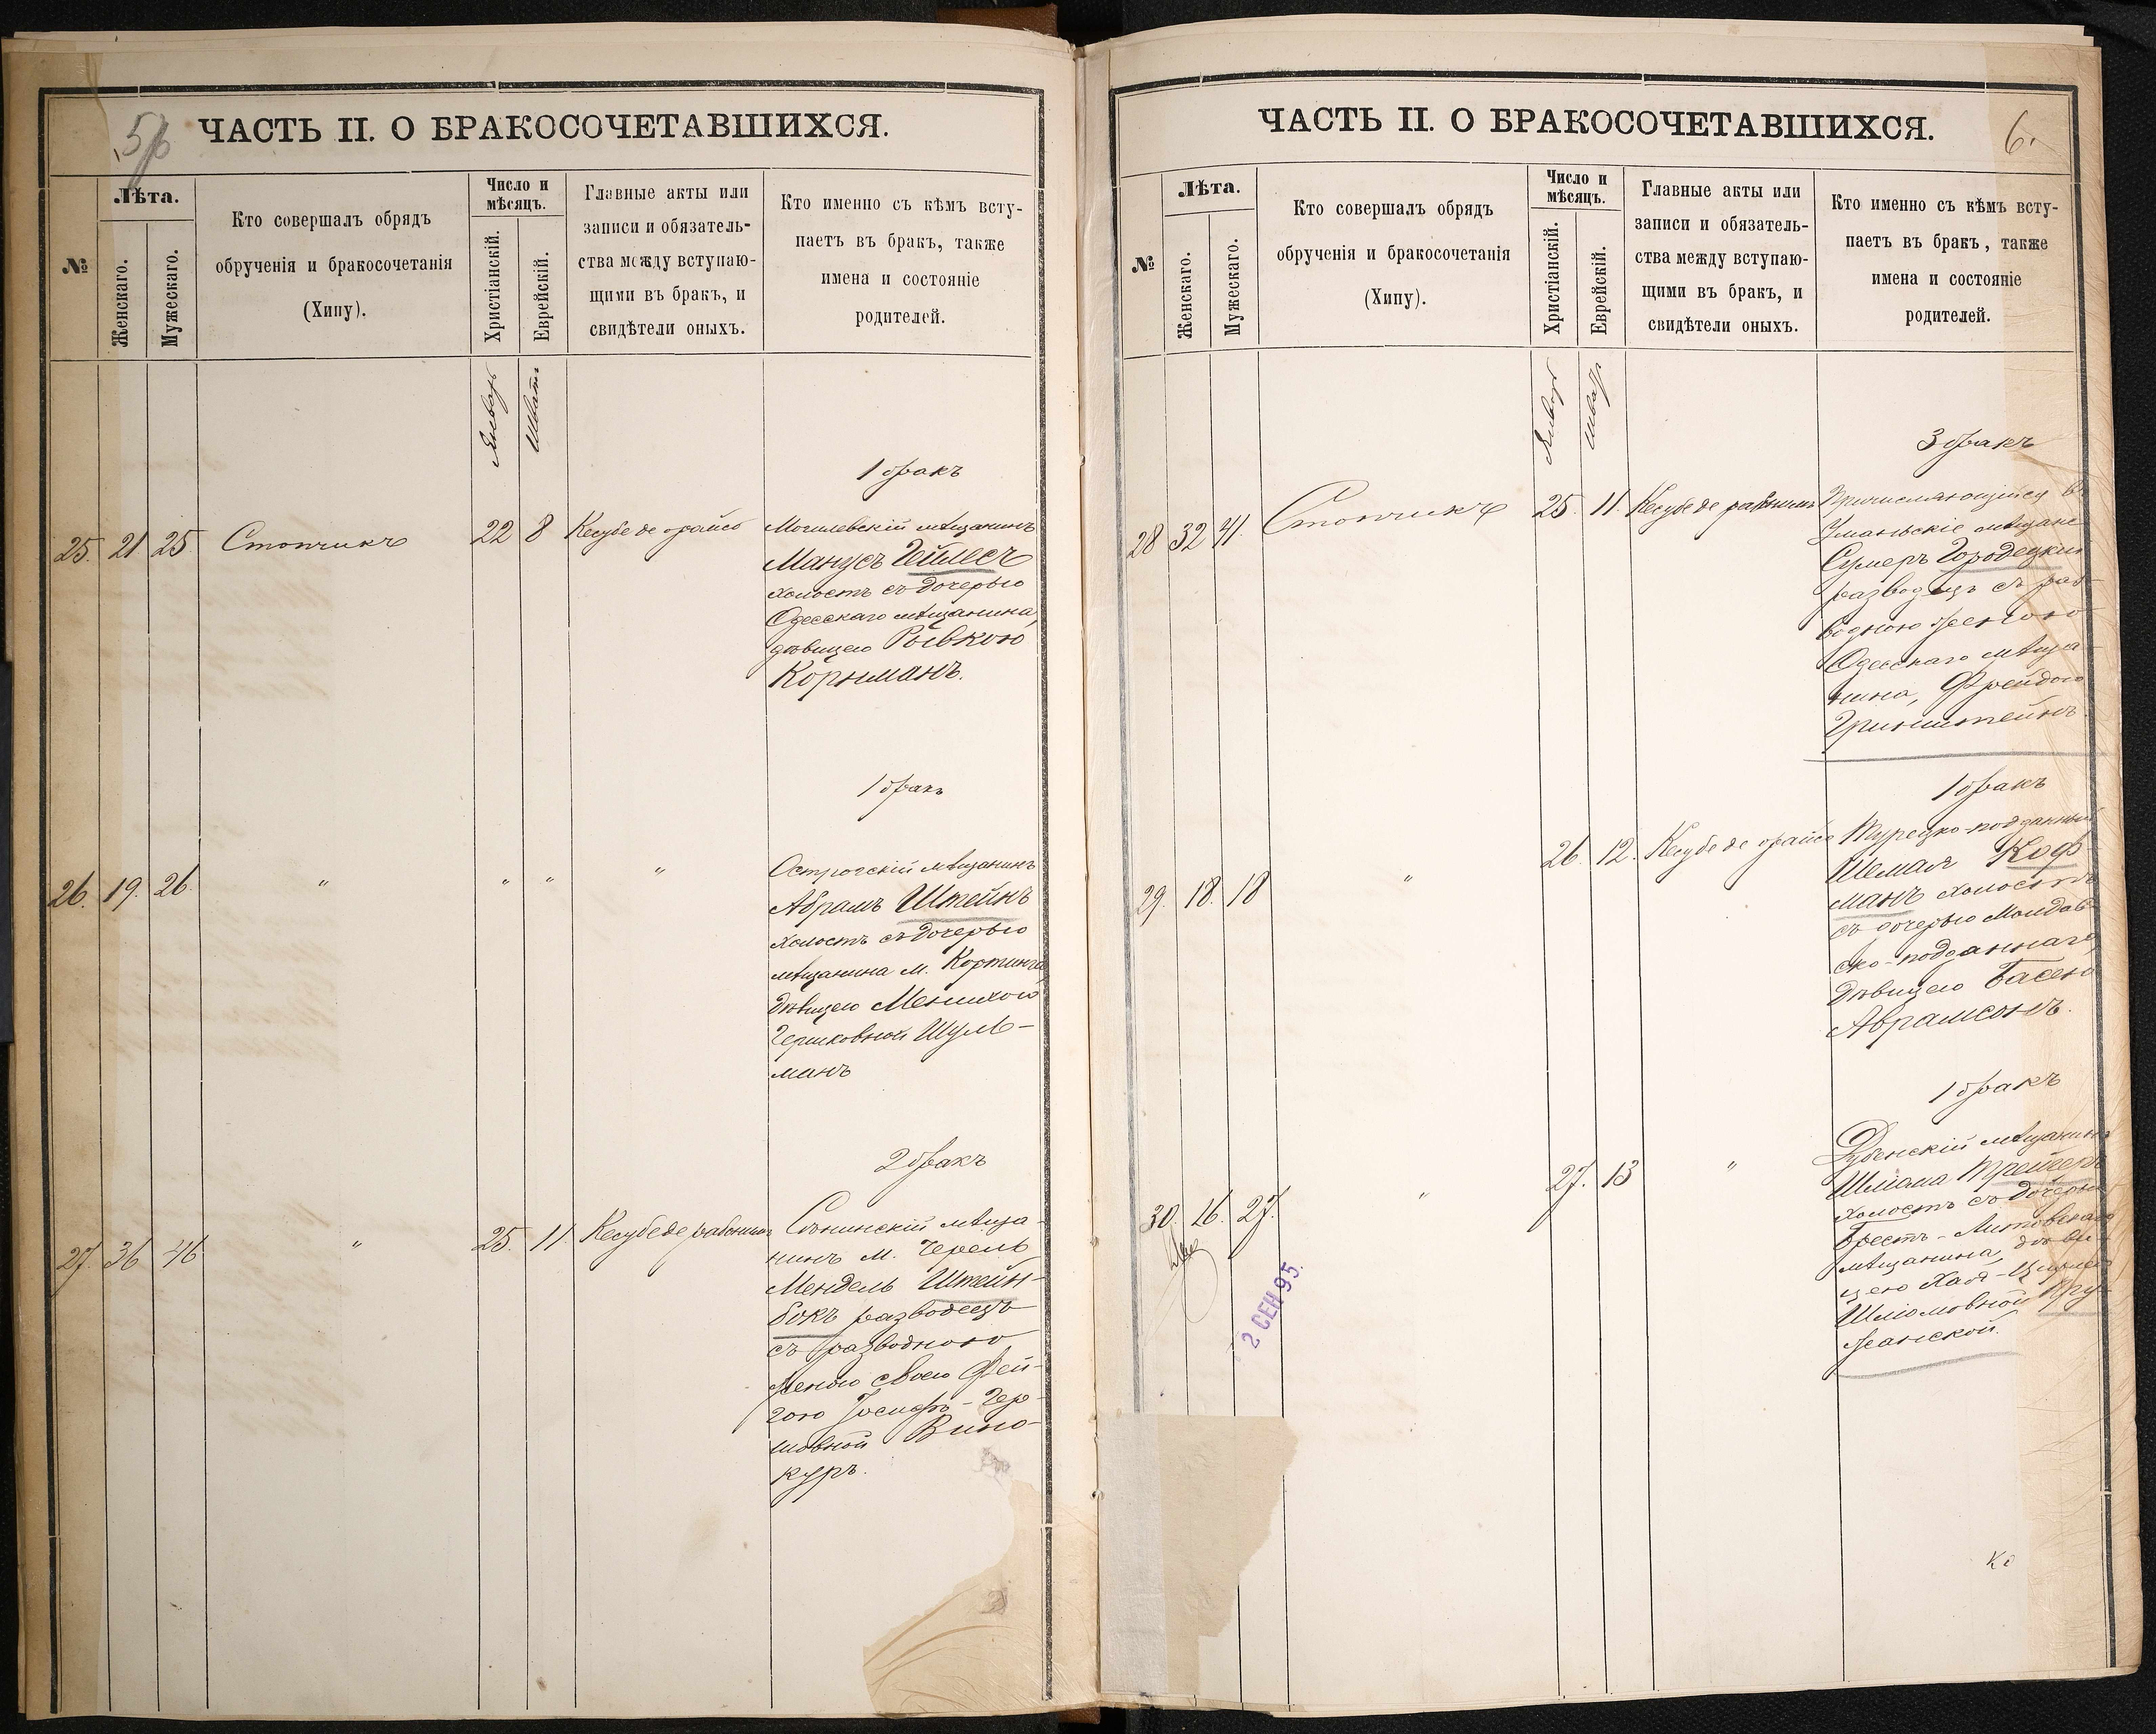 5
ЧАСТЬ II. О БРАКОСОЧЕТАВШИХСЯ.
№
Лѣта.
Женскаго.
Мужескаго.
Кто совершалъ обрядъ
обрученія и бракосочетанія
(Хипу).
Число и
мѣсяцъ.
Христіанскій.
Еврейскій.
Главные акты или
записи и обязатель-
ства между вступаю-
щими въ бракъ, и
свидѣтели оныхъ.
Кто именно съ кѣмъ всту-
паетъ въ бракъ, также
имена и состояніе
родителей.
Январь
Шватъ
1 бракъ
25. 21 25 Стопчикъ 22 8 Кесубе де орайсо
Могилевскій мѣщанинъ
Манусъ Гейлесъ
холостъ съ дочерью
Одесскаго мѣщанина,
дѣвицею Рывкою
Корнманъ.
1 бракъ
26. 19. 26. " " " "
Острогскій мѣщанинъ
Абрамъ Штейнъ
холостъ съ дочерью
мѣщанина м.
дѣвицею
Гершковной Шуль-
манъ
2 бракъ
27. 36 46 " 25. 11. Кесубе де рабонинъ
Сѣнинскій мѣща-
нинъ м. Черель
Мендель Штейн-
бокъ разводецъ
съ разводною
женою своею Фей-
гою Іосифъ-Гер-
шовной Вино-
куръ.
6.
ЧАСТЬ II. О БРАКОСОЧЕТАВШИХСЯ.
№
Лѣта.
Женскаго.
Мужескаго.
Кто совершалъ обрядъ
обрученія и бракосочетанія
(Хипу).
Число и
мѣсяцъ.
Христіанскій.
Еврейскій.
Главные акты или
записи и обязатель-
ства между вступаю-
щими въ бракъ, и
свидѣтели оныхъ.
Кто именно съ кѣмъ всту-
паетъ въ бракъ, также
имена и состояніе
родителей.
Январь
3 бракъ
28 32 41. Стопчикъ 25. 11. Кесубе де рабонинъ
Причисляющійся въ
Уманьскіе мѣщане
Сумеръ Городецкій
разводецъ съ раз-
водною женою
Одесскаго мѣща-
нина, Фрейдою
Гринштейнъ.
1 бракъ
29. 18. 18 " 26. 12. Кесубе де орайсо
Турецко-подданный
Шемая Коф-
манъ холостъ
съ дочерью Молдав-
ско-подданнаго,
дѣвицею Басею
Абрамсонъ.
1 бракъ
30. 16. 27. " 27. 13 "
Дубенскій мѣщанинъ
Шліома Трейгеръ
холостъ съ дочерью
Брестъ-Литовскаго
мѣщанина, дѣви-
цею Хая-
Шліомовной Пру-
жанской.
2 СЕН 95.